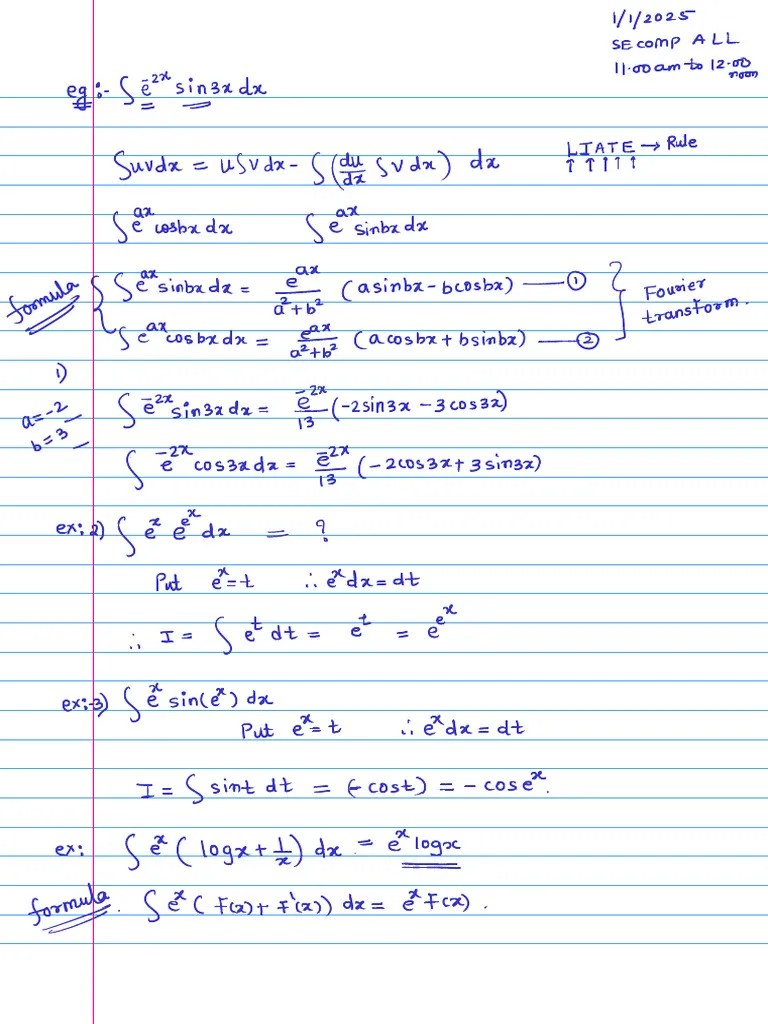 1/1/2025
SE comp ALL
11.00am to 12.00 noon
eg:- ∫ e^{-2x} sin3x dx
∫uvdx = u∫vdx - ∫(du/dx ∫v dx) dx    LIATE → Rule
∫e^{ax} cosbx dx    ∫e^{ax} sinbx dx
formula { ∫e^{ax} sinbx dx = e^{ax}/(a²+b²) (asinbx - bcosbx) —— ① } Fourier transform.
∫e^{ax} cosbx dx = e^{ax}/(a²+b²) (acosbx + bsinbx) —— ②
1)
a=-2 ∫e^{-2x} sin3x dx = e^{-2x}/13 (-2sin3x - 3cos3x)
b=3 ∫ e^{-2x} cos3x dx = e^{-2x}/13 (-2cos3x + 3sin3x)
ex: 2) ∫ e^x e^{e^x} dx = ?
Put e^x = t    ∴ e^x dx = dt
∴ I = ∫ e^t dt = e^t = e^{e^x}
ex:-3) ∫ e^x sin(e^x) dx
Put e^x = t    ∴ e^x dx = dt
I = ∫ sint dt = (-cost) = - cose^x.
ex: ∫ e^x (logx + 1/x) dx = e^x logx
formula. ∫ e^x (F(x) + F'(x)) dx = e^x F(x).